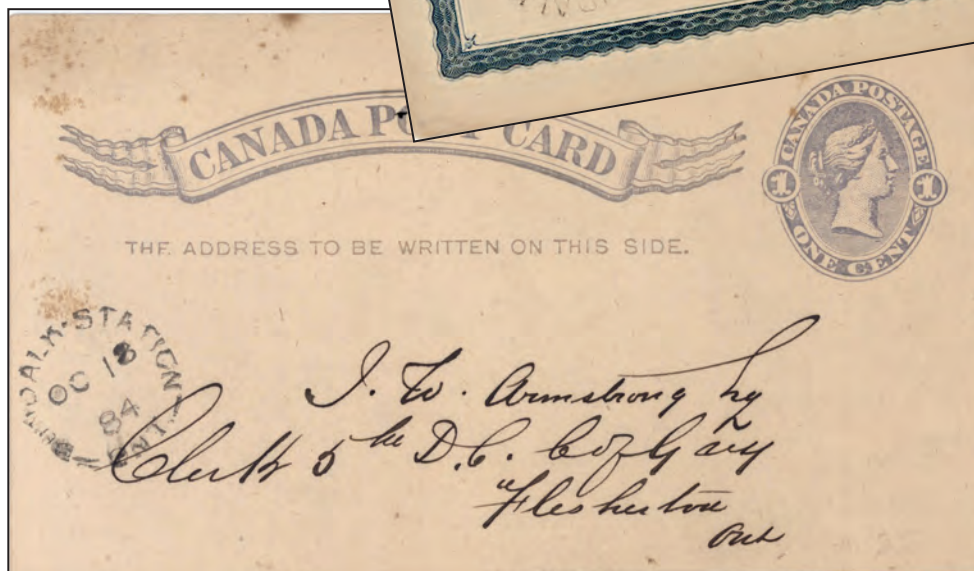 CANADA PO CARD
CANADA POSTAGE
1 1
ONE CENT
THE ADDRESS TO BE WRITTEN ON THIS SIDE.
DALK·STATION
OC 18
84
ONT
J. W. Armstrong Esq
Clerk 5th D.C. Co of Grey
"Flesherton
Ont